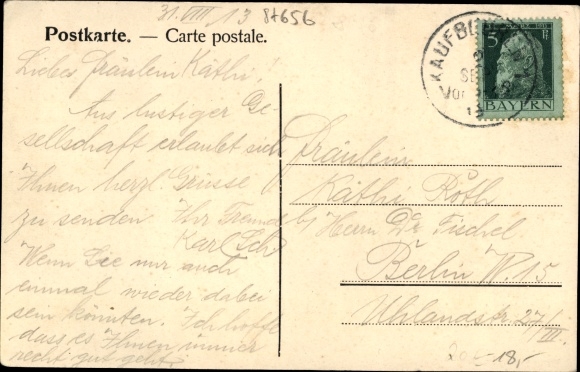 31. VIII. 13 87656
Postkarte. — Carte postale.
Liebes Fräulein Käthi!
Aus lustiger Ge-
sellschaft erlaubt sich
Ihnen herzl. Grüsse
zu senden Ihr Freund
Karl
Wenn Sie nur auch
einmal wieder dabei
sein könnten. Ich hoffe
dass es Ihnen immer
recht gut geht.
KAUFB
SE
Vor
13
5 Pf
BAYERN
Fräulein
Käthi Roth
b/ Herrn Dr. Fischel
Berlin W. 15
Uhlandstr. 27/
III.
18,-